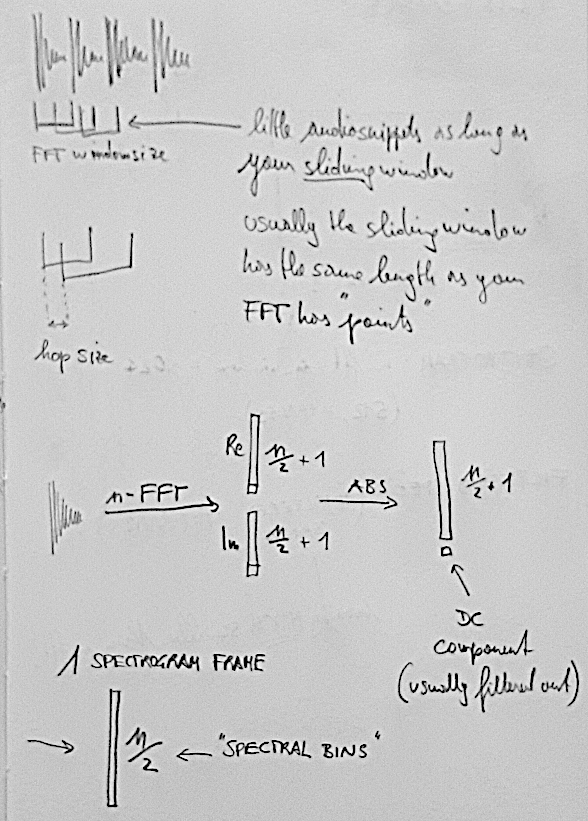 little audiosnippets as long as
your sliding window
FFT windowsize
usually the sliding window
has the same length as your
FFT has "points"
hop size
n-FFT
Re n/2 + 1
Im n/2 + 1
ABS
n/2 + 1
DC
component
(usually filtered out)
1 SPECTROGRAM FRAME
n/2
"SPECTRAL BINS"